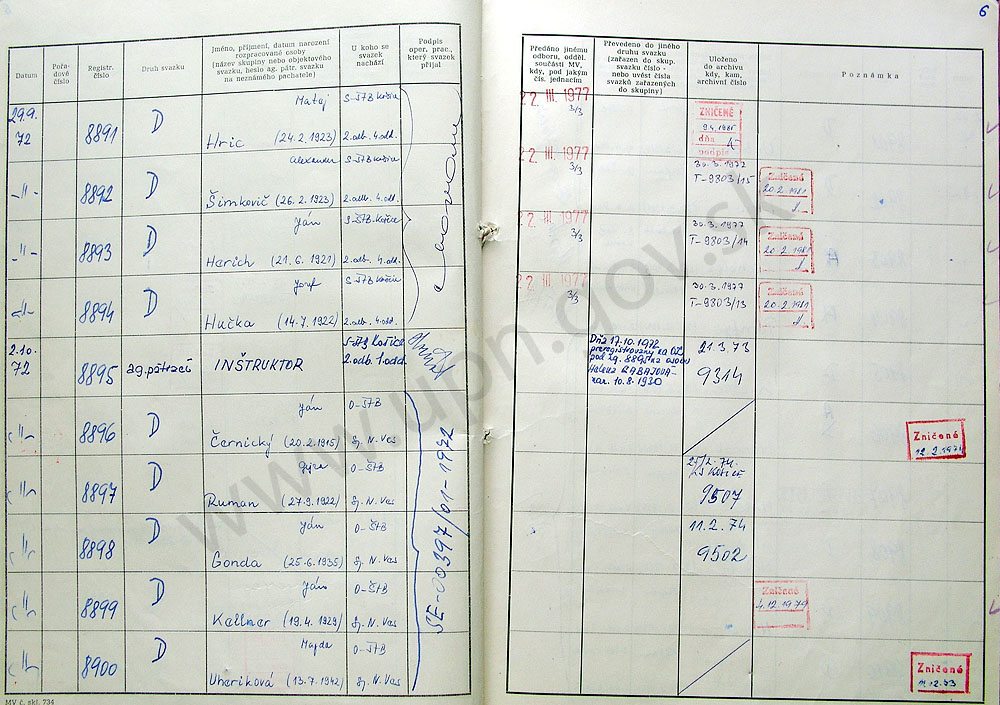 6
Datum
Pořadové číslo
Registr. číslo
Druh svazku
Jméno, příjmení, datum narození rozpracované osoby (název skupiny nebo objektového svazku, heslo ag. pátr. svazku na neznámého pachatele)
U koho se svazek nachází
Podpis oper. prac., který svazek přijal
Předáno jinému odboru, odděl. součásti MV, kdy, pod jakým čís. jednacím
Převedeno do jiného druhu svazku (zařazen do skup. svazku číslo - nebo uvést čísla svazků zařazených do skupiny)
Uloženo do archivu kdy, kam, archivní číslo
Poznámka
29.9. 72 8891 D Matej Hric (24.2.1923) S-ŠtB Košice 2.odb. 4.odd. 22 III. 1977 3/3 ZNIČENÉ dňa podpis
-"- 8892 D Alexander Šimkovič (26.2.1923) S-ŠtB Košice 2.odb. 4.odd. 22 III. 1977 3/3 30.3.1977 T-9803/15 Zničené 20.2.1981
-"- 8893 D Ján Herich (21.6.1921) S-ŠtB Košice 2.odb. 4.odd. 22 III. 1977 3/3 30.3.1977 T-9803/14 Zničené 20.2.1981
-"- 8894 D Jozef Hučka (14.7.1922) S-ŠtB Košice 2.odb. 4.odd. 22 III. 1977 3/3 30.3.1977 T-9803/13 Zničené 20.2.1981
2.10. 72 8895 ag.pátrací INŠTRUKTOR S-ŠtB Košice 2.odb. 1.odd. Dňa 17.10.1972 preregistrovaný na pod rg. 8895 na osobu Helena RABAJOVÁ nar. 10.8.1930 21.3.73 9314
-"- 8896 D Ján Černický (20.2.1915) O-ŠtB Sp. N. Ves Zničené
-"- 8897 D Ruman (27.9.1922) O-ŠtB Sp. N. Ves Košice 9507
-"- 8898 D Ján Gonda (25.6.1935) O-ŠtB Sp. N. Ves 11.2.74 9502
-"- 8899 D Ján Kellner (19.4.1929) O-ŠtB Sp. N. Ves Zničené 4.12.1979
-"- 8900 D Majda Uheríková (13.7.1942) O-ŠtB Sp. N. Ves Zničené
SE-00397/01-1972
MV č. skl. 734
www.upn.gov.sk